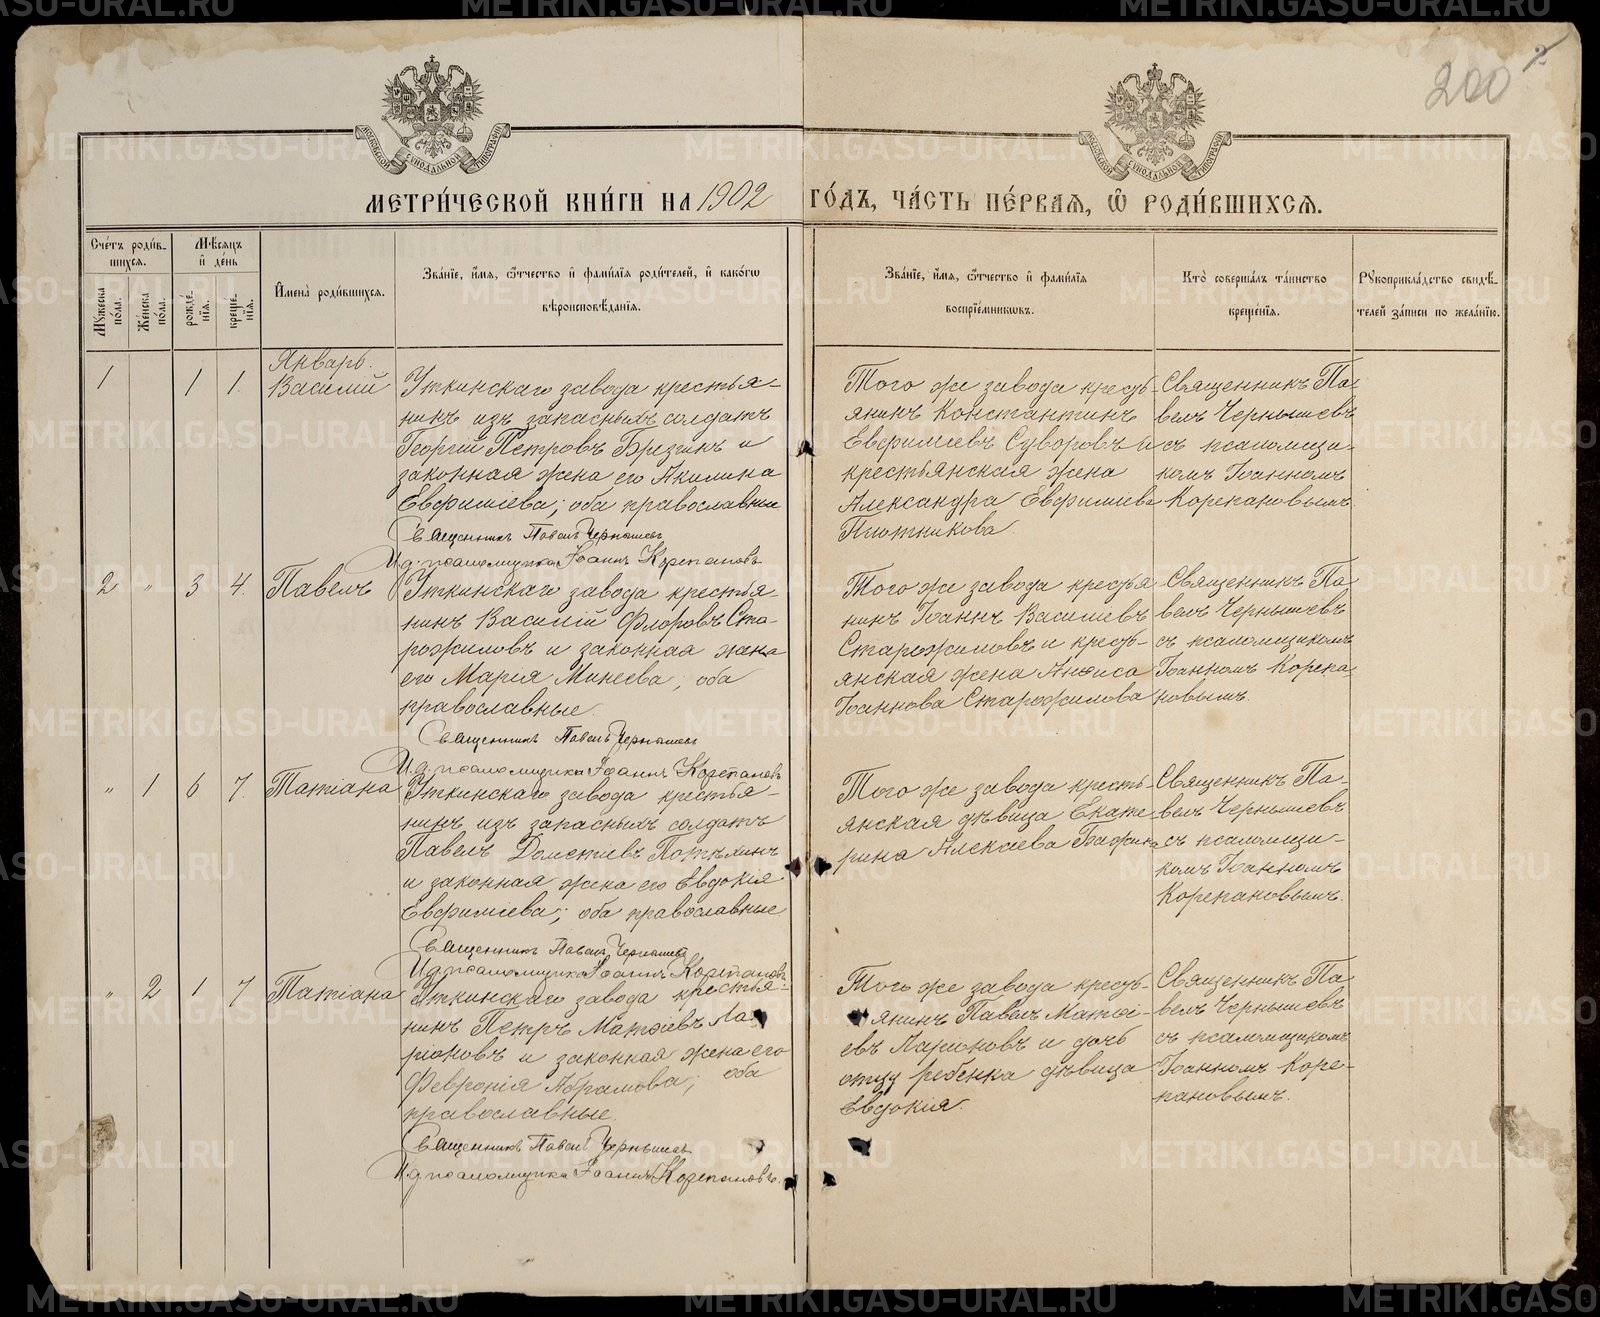 200
2
МЕТРИ́ЧЕСКОЙ КНИ́ГИ НА 1902 ГО́ДЪ, ЧА́СТЬ ПЕ́РВАЯ, Ѽ РОДИ́ВШИХСЯ.
Сче́тъ роди́в-
шихся.
Му́жеска по́ла.
Же́нска по́ла.
Мѣ́сяцъ
и де́нь
рожде́-
нїя.
креще́-
нїя.
Имена̀ роди́вшихся.
Зва́нїе, и́мя, ѻ҆́тчество и фами́лїя роди́телей, и како́гѡ
вѣроисповѣ́данїя.
Зва́нїе, и́мя, ѻ҆́тчество и фами́лїя
воспрїе́мникѡвъ.
Кто̀ соверша́лъ та́инство
креще́нїя.
Рꙋкоприкла́дство свидѣ́-
телей за́писи по жела́нїю.
Январь.
1 1 1. Василій
Уткинскаго завода крестья-
нинъ изъ запасныхъ солдатъ
Георгій Петровъ Брезгинъ и
законная жена его Акилина
Евфиміева; оба православные
Священникъ Павелъ Чернышевъ
И. д. псаломщика Іоаннъ Корепановъ
Того же завода кресть-
янинъ Константинъ
Евфиміевъ Суворовъ и
крестьянская жена
Александра Евфиміева
Плотникова.
Священникъ Па-
велъ Чернышевъ
съ псаломщи-
комъ Іоанномъ
Корепановымъ.
2 " 3 4. Павелъ
Уткинскаго завода крестья-
нинъ Василій Флоровъ Ста-
рожиловъ и законная жена
его Марія Минеева; оба
православные.
Священникъ Павелъ Чернышевъ
И. д. псаломщика Іоаннъ Корепановъ
Того же завода крестья-
нинъ Іоаннъ Василіевъ
Старожиловъ и кресть-
янская жена Анѳиса
Іоаннова Старожилова
Священникъ Па-
велъ Чернышевъ
съ псаломщикомъ
Іоанномъ Корепа-
новымъ.
" 1 6 7. Татіана
Уткинскаго завода крестья-
нинъ изъ запасныхъ солдатъ
Павелъ Дометіевъ Потѣхинъ
и законная жена его Евдокія
Евфиміева; оба православные
Священникъ Павелъ Чернышевъ
И. д. псаломщика Іоаннъ Корепановъ
Того же завода кресть-
янская дѣвица Екате-
рина Алексѣева
Священникъ Па-
велъ Чернышевъ
съ псаломщи-
комъ Іоанномъ
Корепановымъ.
" 2 1 7 Татіана
Уткинскаго завода крестья-
нинъ Петръ Матѳіевъ Ла-
ріоновъ и законная жена его
Февронія Абрамова; оба
православные.
Священникъ Павелъ Чернышевъ
И. д. псаломщика Іоаннъ Корепановъ.
Того же завода кресть-
янинъ Павелъ Матѳі-
евъ Ларіоновъ и дочь
отцу ребенка дѣвица
Евдокія.
Священникъ Па-
велъ Чернышевъ
съ псаломщикомъ
Іоанномъ Коре-
пановымъ.
METRIKI.GASO-URAL.RU